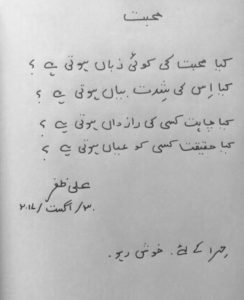 محبت
کیا محبت کی کوئی زباں ہوتی ہے ؟
کیا اِس کی شِدت بیاں ہوتی ہے ؟
کیا چاہت کسی کی رازداں ہوتی ہے ؟
کیا حقیقت کسی کو عیاں ہوتی ہے ؟
علی ظفر
۳۰/اگست/۲۰۱۴
کے لئے۔ خوش رہو۔